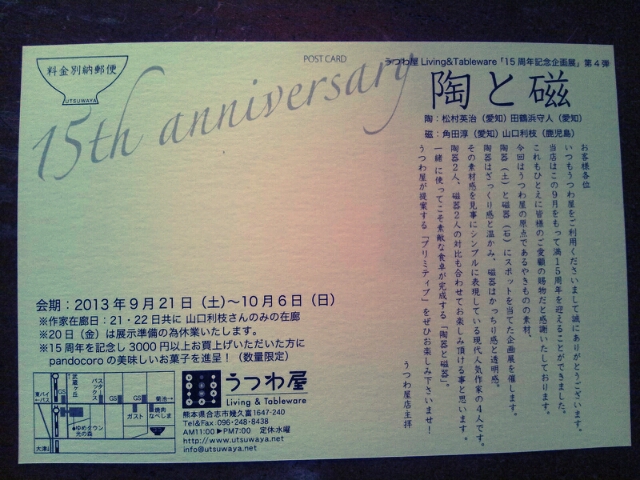 料金別納郵便
UTSUWAYA
POST CARD
15th anniversary
うつわ屋 Living&Tableware「15周年記念企画展」第4弾
陶と磁
陶：松村英治（愛知）田鶴浜守人（愛知）
磁：角田淳（愛知）山口利枝（鹿児島）
お客様各位
いつもうつわ屋をご利用くださいまして誠にありがとうございます。
当店はこの9月をもって満15周年を迎えることができました。
これもひとえに皆様のご愛顧の賜物だと感謝いたしております。
今回はうつわ屋の原点であるやきものの素材、
陶器（土）と磁器（石）にスポットを当てた企画展を催します。
陶器はざっくり感と温かみ、磁器はかっちり感と透明感。
その素材感を見事にシンプルに表現している現代人気作家の4人です。
陶器2人、磁器2人の対比も合わせてお楽しみ頂ける事と思います。
一緒に使ってこそ素敵な食卓が完成する「陶器と磁器」。
うつわ屋が提案する「プリミティブ」をぜひお楽しみ下さいませ！
うつわ屋店主拝
会期：2013年9月21日（土）〜10月6日（日）
※作家在廊日：21・22日共に 山口利枝さんのみの在廊
※20日（金）は展示準備の為休業いたします。
※15周年を記念し3000円以上お買上げいただいた方に
pandocoroの美味しいお菓子を進呈！（数量限定）
うつわ屋
Living & Tableware
熊本県合志市幾久富1647-240
Tel&Fax:096-248-8438
AM11:00▶PM7:00 定休水曜
http://www.utsuwaya.net
info@utsuwaya.net
武蔵ヶ丘
東バイパス
GS
GS
菊池→
ガスト
焼肉なべしま
ゆめタウン光の森
大津↓